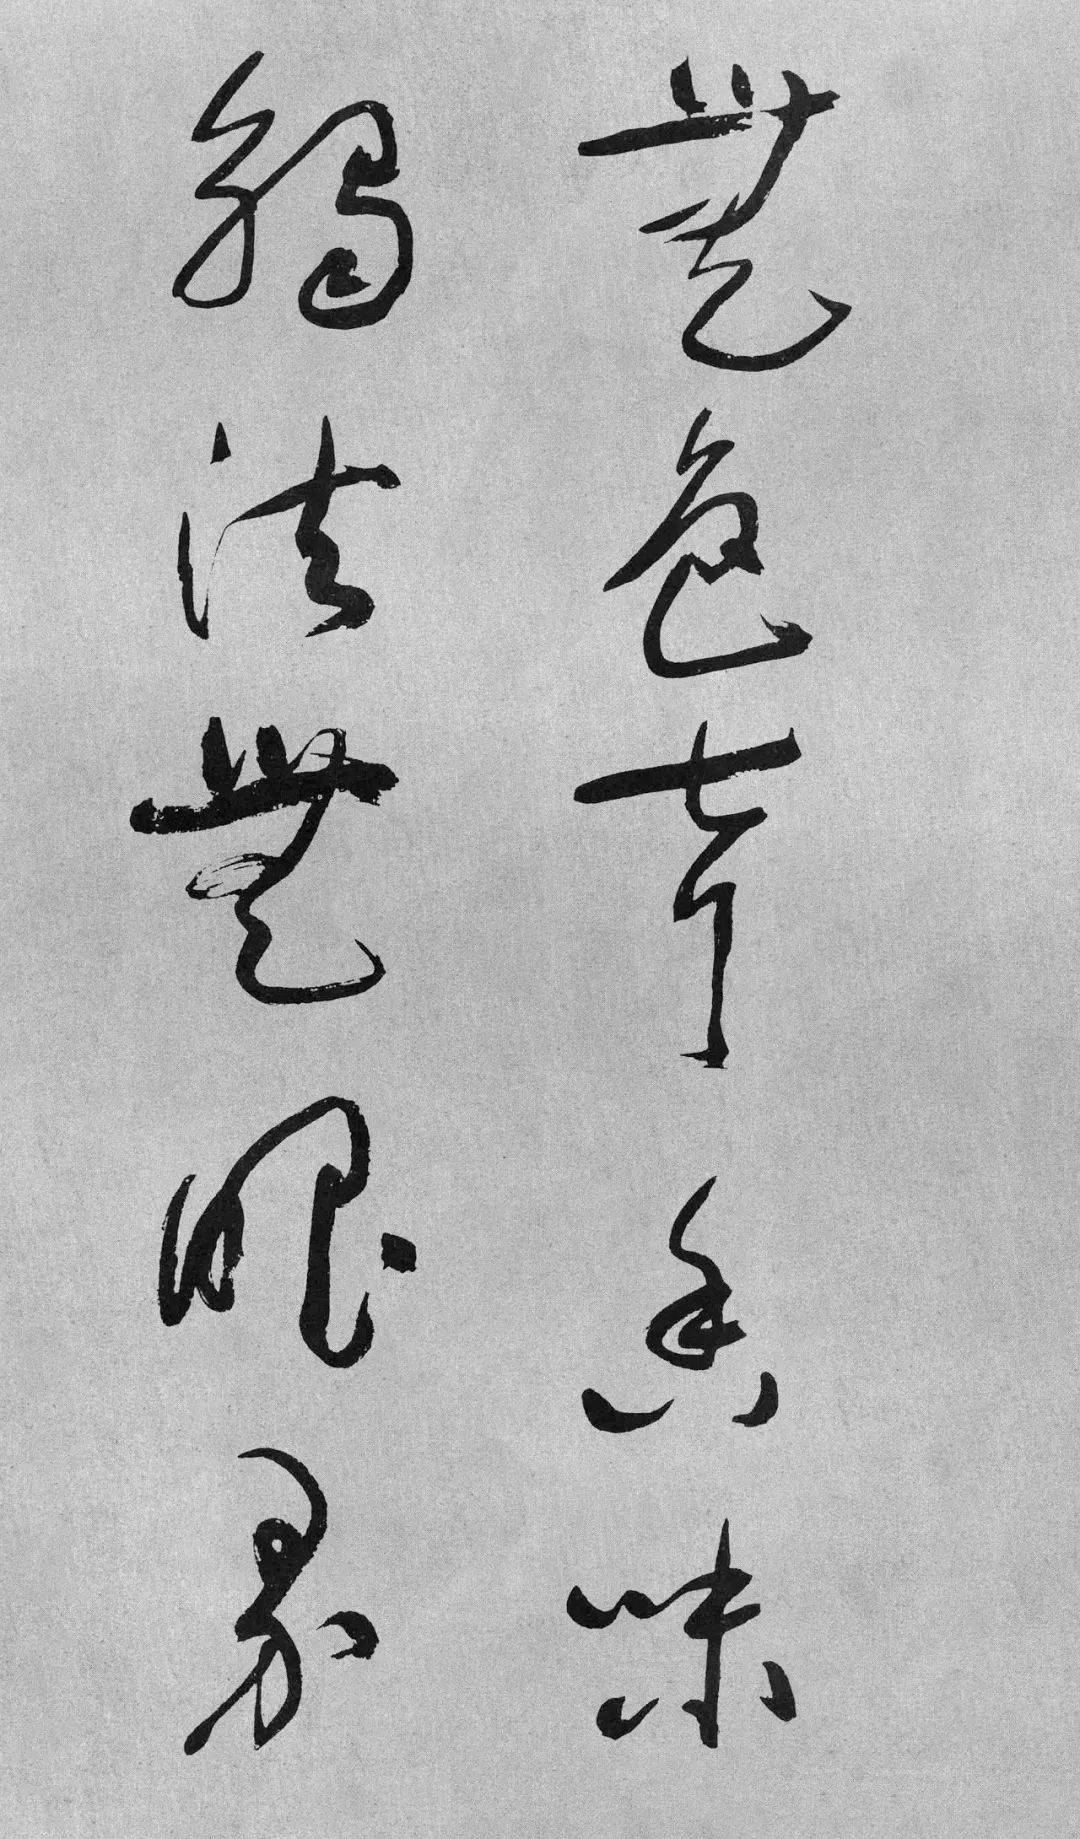 無色声香味
觸法無眼界